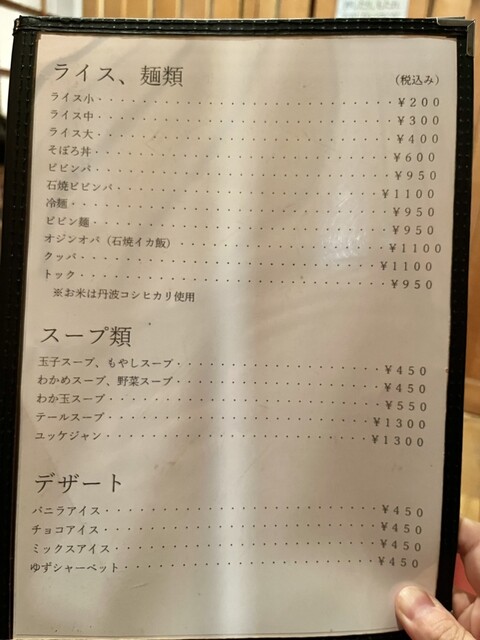 ライス、麺類 (税込み)
ライス小 ¥200
ライス中 ¥300
ライス大 ¥400
そぼろ丼 ¥600
ビビンバ ¥950
石焼ビビンバ ¥1100
冷麺 ¥950
ビビン麺 ¥950
オジンオバ(石焼イカ飯) ¥1100
クッパ ¥1100
トック ¥950
※お米は丹波コシヒカリ使用
スープ類
玉子スープ、もやしスープ ¥450
わかめスープ、野菜スープ ¥450
わか玉スープ ¥550
テールスープ ¥1300
ユッケジャン ¥1300
デザート
バニラアイス ¥450
チョコアイス ¥450
ミックスアイス ¥450
ゆずシャーベット ¥450